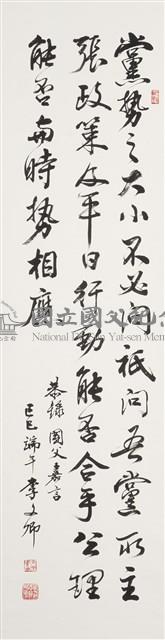 黨勢之大小不必問祇問吾黨所主
張政策及平日行動能否合乎公理
能否與時勢相應
恭錄 國父嘉言
己巳端午 李文卿
國立國父紀念館
National Dr. Sun Yat-sen Memorial